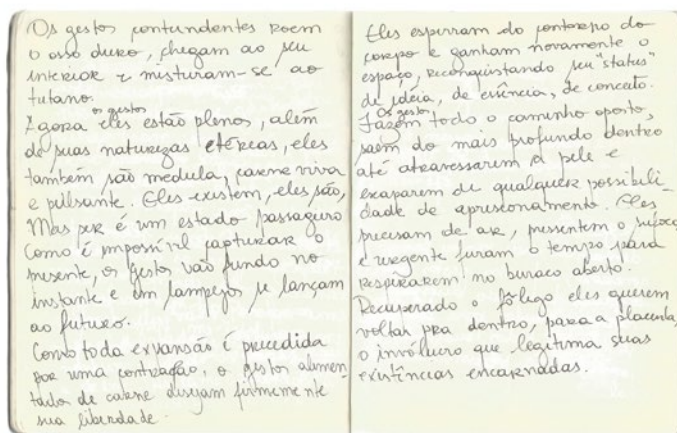 Os gestos contundentes roem
o osso duro, chegam ao seu
interior e misturam-se ao
tutano.
os gestos
Agora eles estão plenos, além
de suas naturezas etéreas, eles
também são medula, carne viva
e pulsante. Eles existem, eles são,
Mas ser é um estado passageiro
Como é impossível capturar o
presente, os gestos vão fundo no
instante e em lampejos se lançam
ao futuro.
Como toda expansão é precedida
por uma contração, o gestos alimen-
tados de carne desejam firmemente
sua liberdade.
Eles espirram do contorpo do
corpo e ganham novamente o
espaço, reconquistando seu "status"
de idéia, de essência, de conceito.
Os gestos
Fazem todo o caminho oposto,
saem do mais profundo dentro
até atravessarem a pele e
escaparem de qualquer possibili-
dade de aprisionamento. Eles
precisam de ar, pressentem o sufoco
e urgente furam o tempo para
respirarem no buraco aberto.
Recuperado o fôlego eles querem
voltar pra dentro, para a placenta,
o invólucro que legitima suas
existências encarnadas.